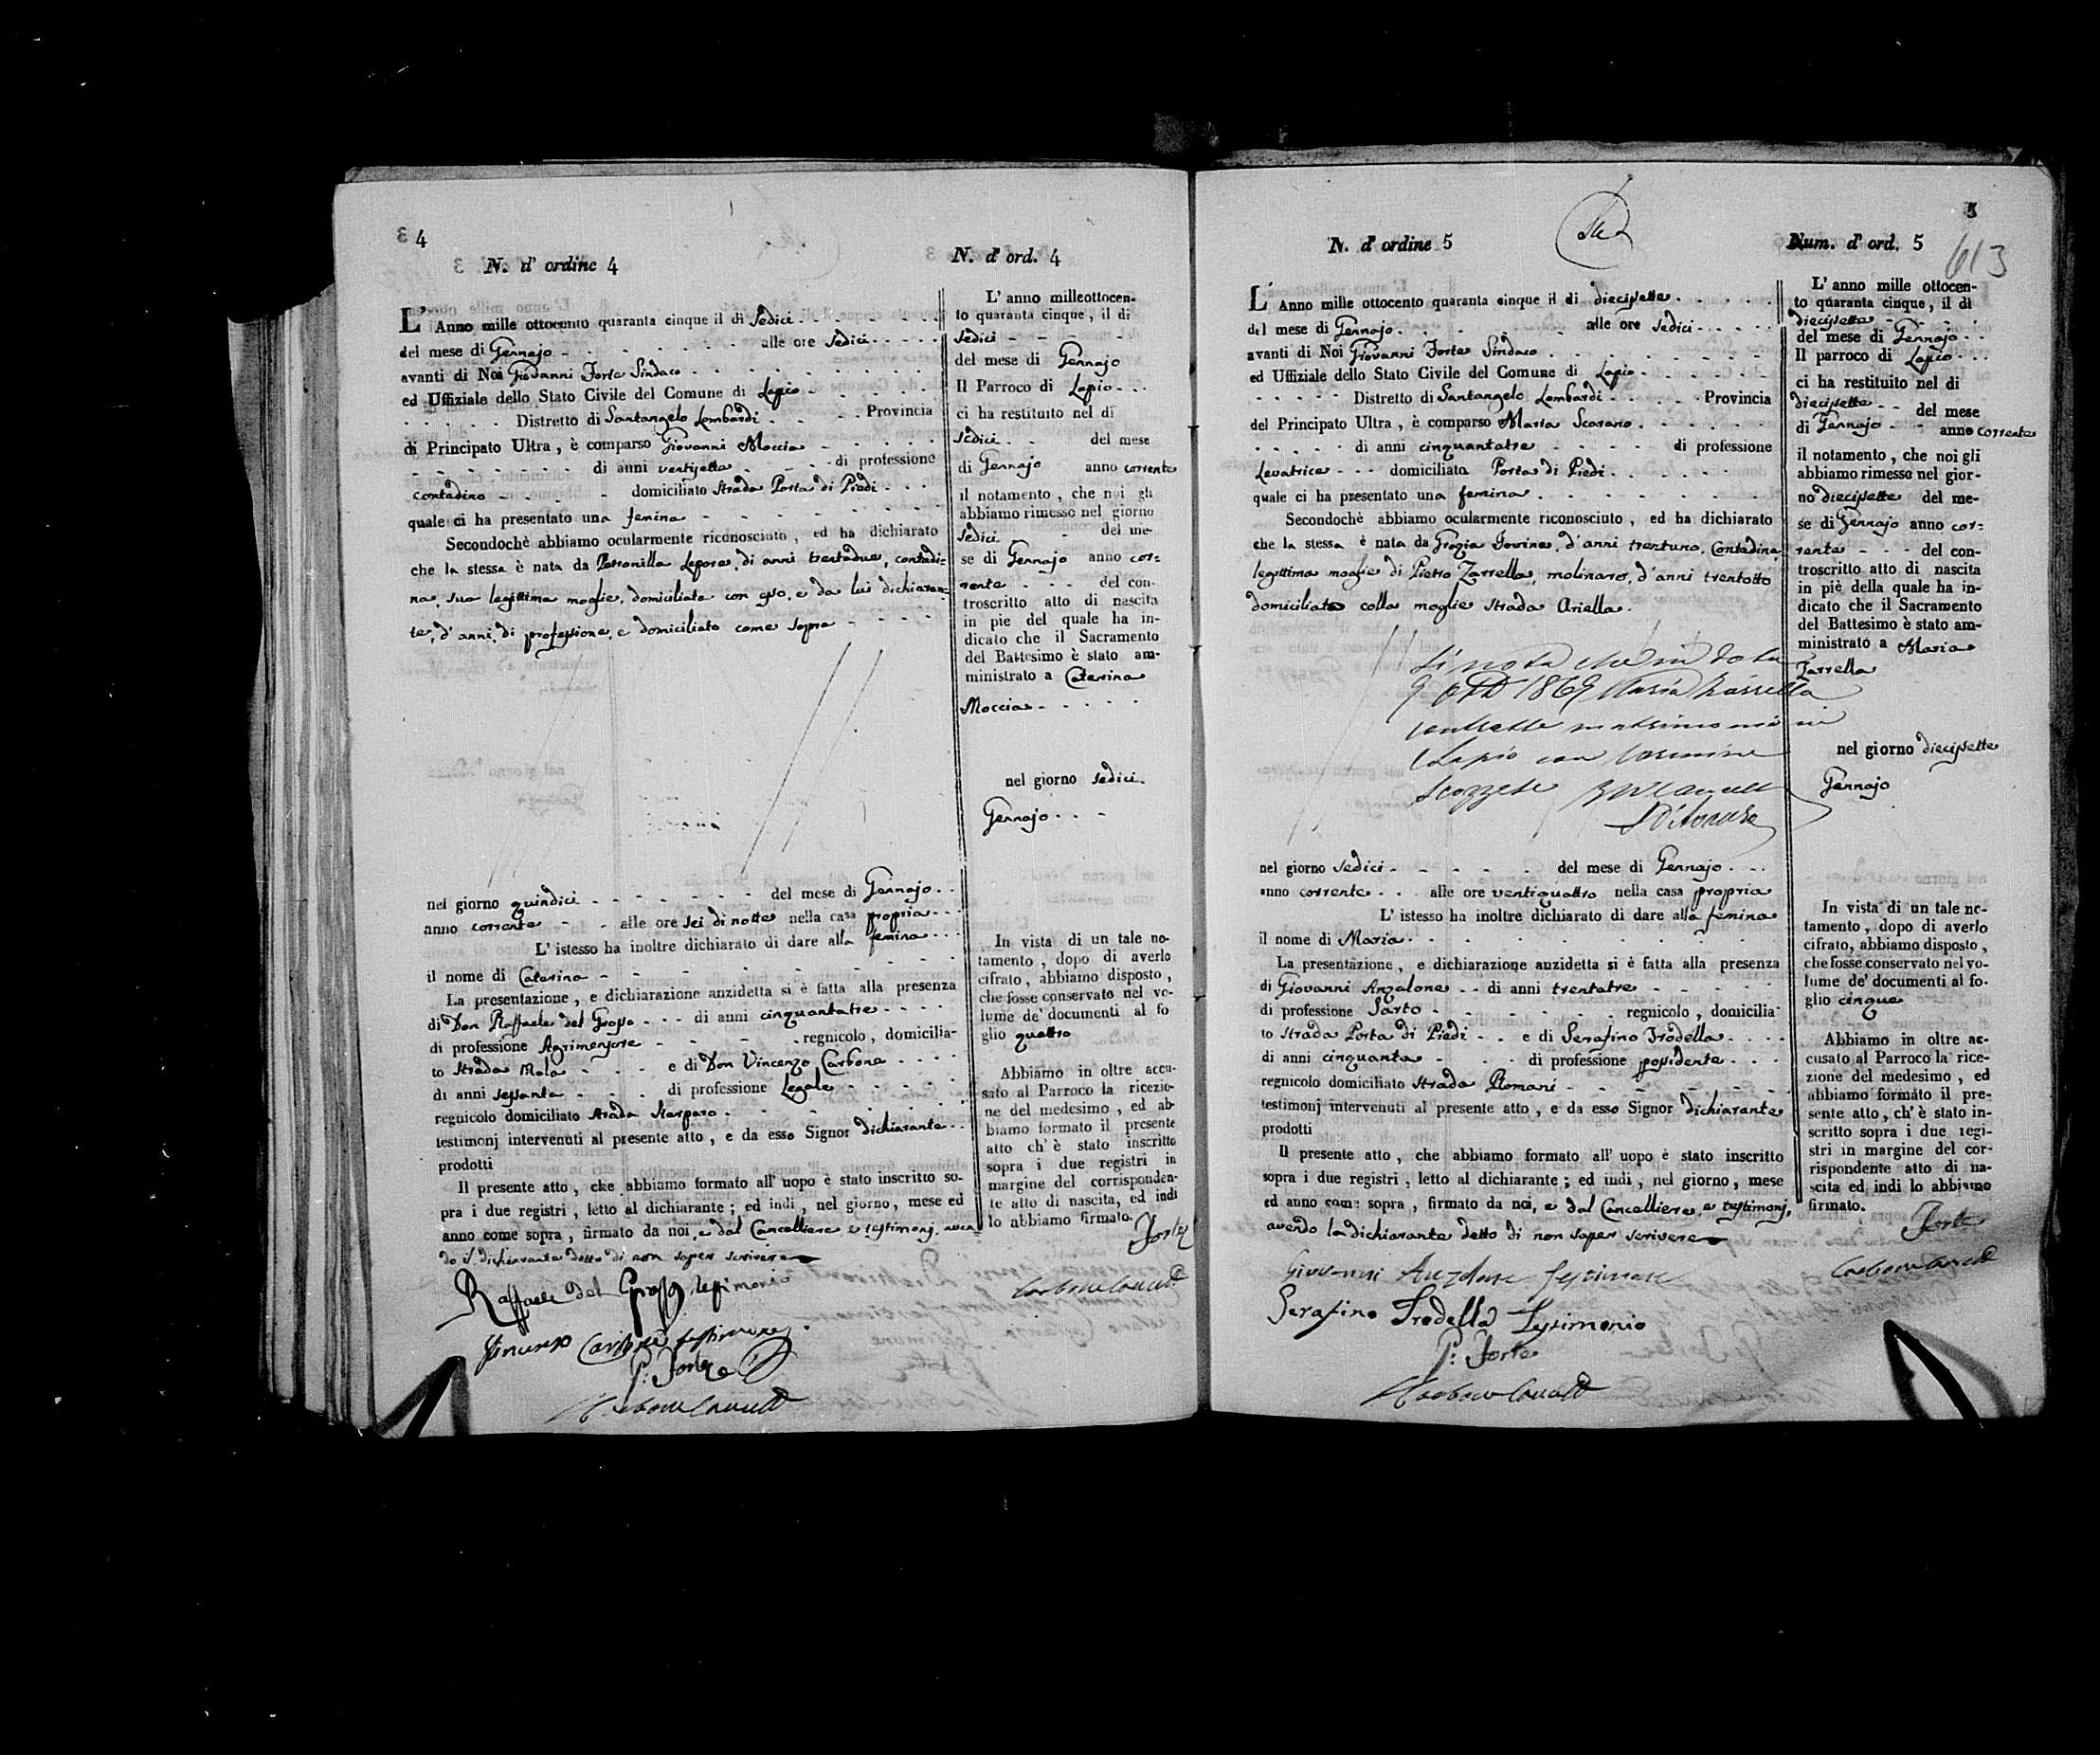 4
N. d' ordine 4
L' Anno mille ottocento quaranta cinque il di Sedici
del mese di Gennajo alle ore Sedici
avanti di Noi Giovanni Forte Sindaco
ed Uffiziale dello Stato Civile del Comune di Lapio
Distretto di Santangelo Lombardi Provincia
di Principato Ultra, è comparso Giovanni Moccia
di anni ventisette di professione
contadino domiciliato Strada Porta di Piedi
quale ci ha presentato una femina
Secondochè abbiamo ocularmente riconosciuto, ed ha dichiarato
che la stessa è nata da Petronilla Lepore, di anni trentadue, contadi-
na, sua legittima moglie, domiciliata con esso, e da lui dichiaran-
te, d'anni, di professione, e domiciliato come sopra
nel giorno quindici del mese di Gennajo
anno corrente alle ore sei di notte nella casa propria
L' istesso ha inoltre dichiarato di dare alla femina
il nome di Catarina
La presentazione, e dichiarazione anzidetta si è fatta alla presenza
di Don Raffaele del Grosso di anni cinquantatre
di professione Agrimensore regnicolo, domicilia-
to Strada Mala e di Don Vincenzo Carbone
di anni sessanta di professione Legale
regnicolo domiciliato Strada
testimonj intervenuti al presente atto, e da esso Signor dichiarante
prodotti
Il presente atto, che abbiamo formato all' uopo è stato inscritto so-
pra i due registri, letto al dichiarante; ed indi, nel giorno, mese ed
anno come sopra, firmato da noi, e dal Cancelliere e testimonj, aven-
do il dichiarante detto di non saper scrivere
Raffaele del Grosso testimonio
Vincenzo Carbone testimone
P: Forte
Carbone Cancell
N. d' ord. 4
L' anno milleottocen-
to quaranta cinque, il di
Sedici
del mese di Gennajo
Il Parroco di Lapio
ci ha restituito nel dì
sedici del mese
di Gennajo anno corrente
il notamento, che noi gli
abbiamo rimesso nel giorno
Sedici del me-
se di Gennajo anno cor-
rente del con-
troscritto atto di nascita
in pie del quale ha in-
dicato che il Sacramento
del Battesimo è stato am-
ministrato a Catarina
Moccia
nel giorno sedici
Gennajo
In vista di un tale no-
tamento, dopo di averlo
cifrato, abbiamo disposto,
che fosse conservato nel vo-
lume de' documenti al fo
glio quattro
Abbiamo in oltre accu-
sato al Parroco la ricezio-
ne del medesimo, ed ab-
biamo formato il presente
atto ch' è stato inscritto
sopra i due registri in
margine del corrisponden-
te atto di nascita, ed indi
lo abbiamo firmato.
Forte
Carbone Cancell
5
613
N. d' ordine 5
L' Anno mille ottocento quaranta cinque il di diecisette
del mese di Gennajo alle ore Sedici
avanti di Noi Giovanni Forte Sindaco
ed Uffiziale dello Stato Civile del Comune di Lapio
Distretto di Santangelo Lombardi Provincia
del Principato Ultra, è comparso Maria Scarano
di anni cinquantatre di professione
Levatrice domiciliata Porta di Piedi
quale ci ha presentato una femina
Secondochè abbiamo ocularmente riconosciuto, ed ha dichiarato
che la stessa è nata da Grazia Iovine, d'anni trentuno, Contadina,
legittima moglie di Pietro Zarrella, molinaro, d'anni trentotto
domiciliato colla moglie Strada Ariella.
Si nota che in data
9 1869 Maria Zarrella
contratto matrimonio in
Lapio con Carmine
Scozzese
nel giorno Sedici del mese di Gennajo
anno corrente alle ore ventiquattro nella casa propria
L' istesso ha inoltre dichiarato di dare alla femina
il nome di Maria
La presentazione, e dichiarazione anzidetta si è fatta alla presenza
di Giovanni Anzalone di anni trentatre
di professione Sarto regnicolo, domicilia-
to Strada Porta di Piedi e di Serafino Frodella
di anni cinquanta di professione possidente
regnicolo domiciliato Strada Romani
testimonj intervenuti al presente atto, e da esso Signor dichiarante
prodotti
Il presente atto, che abbiamo formato all' uopo è stato inscritto
sopra i due registri, letto al dichiarante; ed indi, nel giorno, mese
ed anno come sopra, firmato da noi, e dal Cancelliere, e testimonj,
avendo la dichiarante detto di non saper scrivere
Giovanni Anzalone testimone
Serafino Frodella Testimonio
P: Forte
Carbone Cancell
Num. d' ord. 5
L' anno mille ottocen-
to quaranta cinque, il di
diecisette
del mese di Gennajo
Il parroco di Lapio
ci ha restituito nel di
diecisette del mese
di Gennajo anno corrente
il notamento, che noi gli
abbiamo rimesso nel gior-
no diecisette del me-
se di Gennajo anno cor-
rente del con-
troscritto atto di nascita
in piè della quale ha in-
dicato che il Sacramento
del Battesimo è stato am-
ministrato a Maria
Zarrella
nel giorno diecisette
Gennajo
In vista di un tale no-
tamento, dopo di averlo
cifrato, abbiamo disposto,
che fosse conservato nel vo-
lume de' documenti al fo-
glio cinque
Abbiamo in oltre ac-
cusato al Parroco la rice-
zione del medesimo, ed
abbiamo formato il pre-
sente atto, ch' è stato in-
scritto sopra i due regi-
stri in margine del cor-
rispondente atto di na-
scita ed indi lo abbiamo
firmato.
Forte
Carbone Cancell